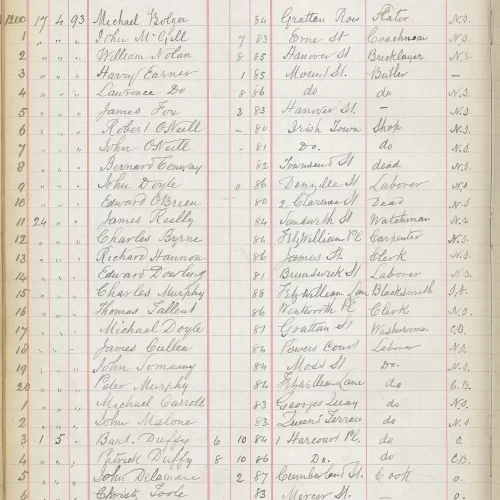 1200 17 4 93 Michael Bolger 84 Gratten Row Slator N.S.
1 " " " John McGill 7 83 Erne St Coachman N.S.
2 " " " William Nolan 8 85 Hanover St Bricklayer N.S.
3 " " " Harry Earner 1 85 Mount St. Butler —
4 " " " Lawrence Do 8 86 do do N.S.
5 " " " James Fox 3 83 Hanover St. — N.S.
6 " " " Robert O'Neill – 80 Irish Town Shop N.S.
7 " " " John O'Neill – 81 Do. do N.S.
8 " " " Bernard Conway 82 Townsend St dead N.S.
9 " " " John Doyle 0 86 Denzille St Laborer N.S.
10 " " " Edward O'Brien 80 2 Clarence St Dead N.S.
11 24 " " James Reilly 84 Watchman N.S.
12 " " " Charles Byrne 84 FitzWilliam Pl Carpenter N.S.
13 " " " Richard Hannon 86 James St. Clerk N.S.
14 " " " Edward Dowling 81 Brunswick St Laborer N.S.
15 " " " Charles Murphy 88 FitzWilliam Lane Blacksmith
16 " " " Thomas Tallent 86 Wentworth Pl Clerk N.S.
17 " " " Michael Doyle 87 Grattan St Washwoman C.B.
18 " " " James Cullen 84 Powers Court Laborer N.S.
19 " " " John 84 Moss St Do. N.S.
20 " " " Peter Murphy 84 Fitzwilliam Lane do C.B.
1 " " " Michael Carroll 83 Georges Quay do N.S.
2 " " " John Malone 83 Queen's Terrace do N.S.
3 1 5 " Bart. Duffy 6 10 84 1 Harcourt Pl. do O.
4 " " " Patrick Duffy 8 10 86 Do. do C.B.
5 " " " John Delamare 2 87 Cumberland St. Cook O.
6 " " " Christy Toole 83 Mercer St. — O.